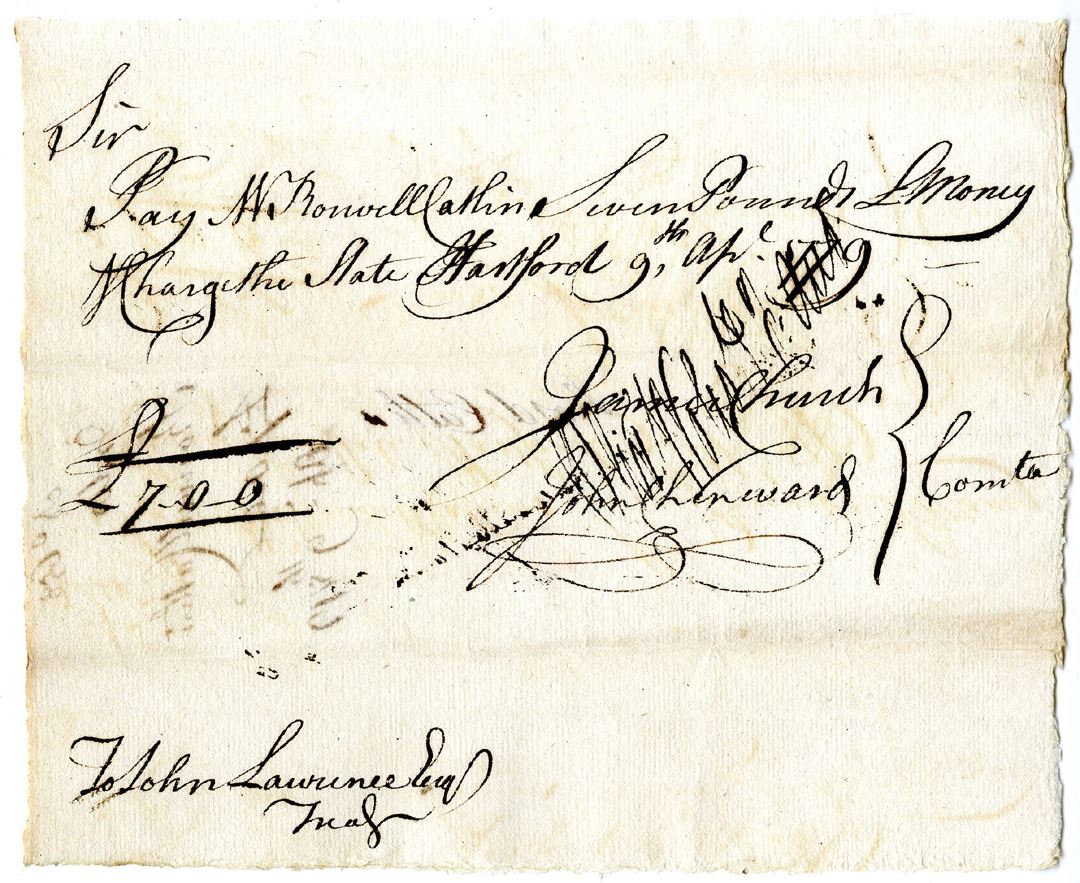 Sir
Pay Mr Roswell Catlin Seven Pounds L Money
& Charge the State Hartford 9th Apl. 1779
James Church
John Chenward
Comtte
£ 7.0.0
To John Lawrence Esqr
Treasr